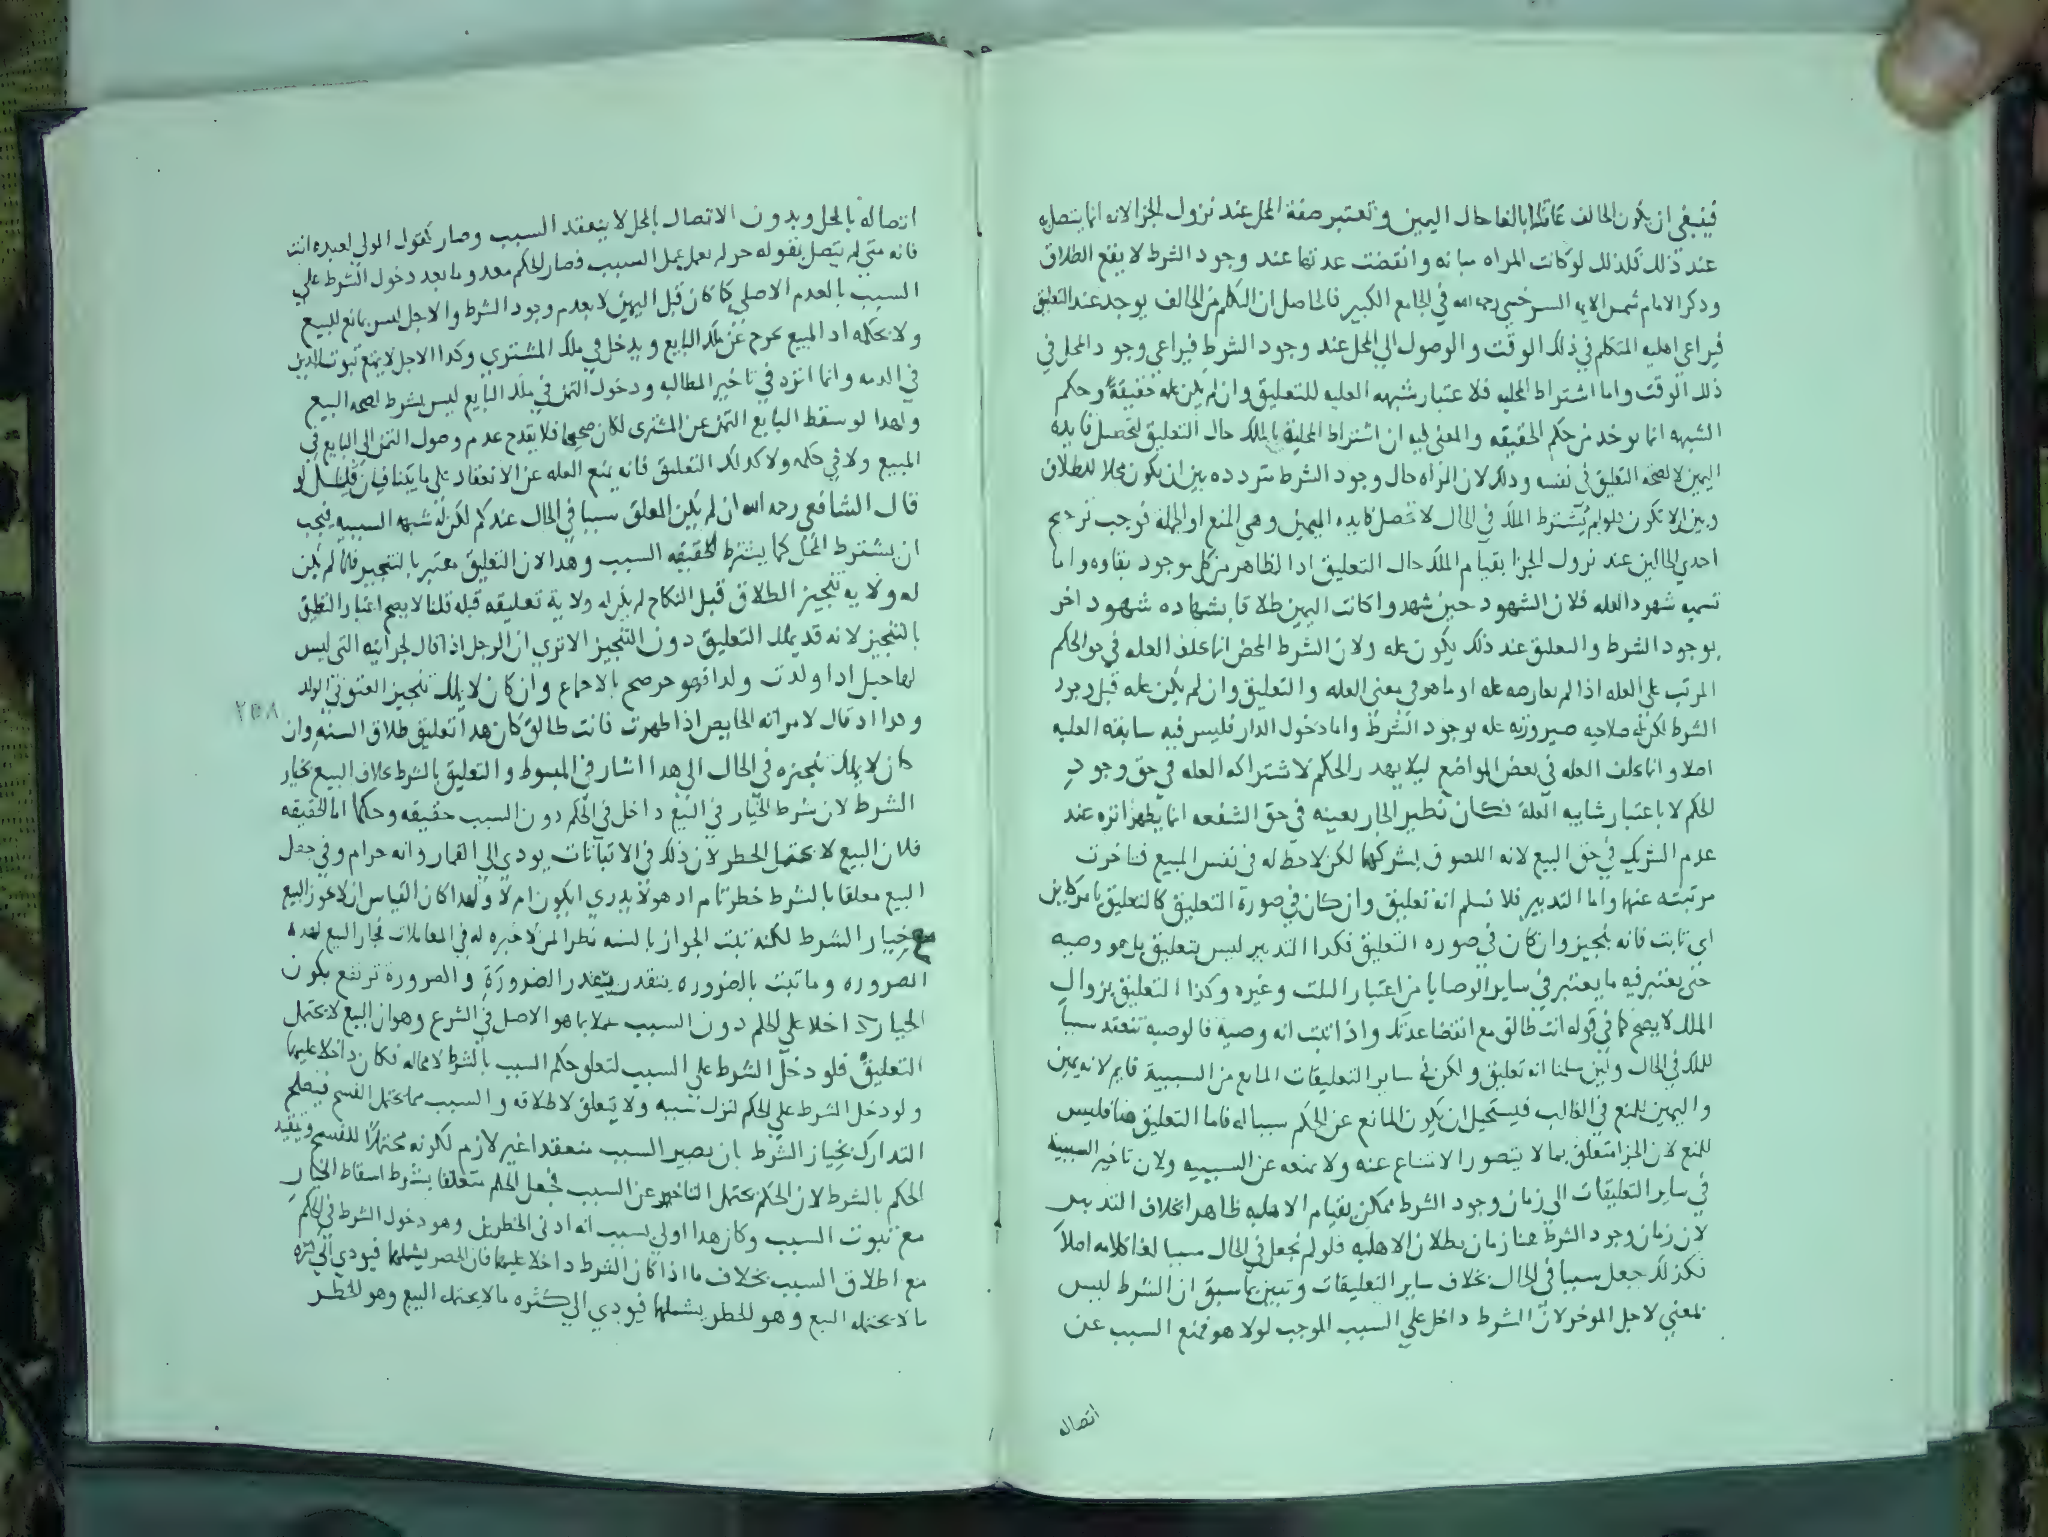 فينبغي ان يكون الحالف عاقلا بالغا حال اليمين وتعتبر صفة المحل عند نزول الجزا لانه انما يتصل به
عند ذلك فلذلك لو كانت المراه مبانه وانقضت عدتها عند وجود الشرط لا يقع الطلاق
وذكر الامام شمس الايمه السرخسي رحمه الله في الجامع الكبير فالحاصل ان التكلم من الحالف يوجد عند التعليق
فيراعي اهليه المتكلم في ذلك الوقت والوصول الي المحل عند وجود الشرط فيراعي وجود المحل في
ذلك الوقت واما اشتراط المحليه فلا عتبار شبهه العليه للتعليق وان لم يكن عله حقيقة وحكم
الشبهه انما يوخذ من حكم الحقيقه والمعنى فيه ان اشتراط المحلية بالملك حال التعليق لتحصل فايده
اليمين لا لصحه التعليق في نفسه وذلك لان المراه حال وجود الشرط مترددة بين ان يكون محلا للطلاق
وبين ان لا تكون فلو لم يشترط الملك في الحال لا تحصل فايده اليمين وهي المنع او الحمل فوجب ترجيح
احدي الحالين عند نزول الجزا بقيام الملك حال التعليق اذ الظاهر من كل موجود بقاوه واما
تسميه شهود العله فلان الشهود حين شهدوا كانت اليمين طلاقا بشهاده شهود اخر
بوجود الشرط والتعليق عند ذلك يكون عله ولان الشرط المحض انما يخلف العله في حق الحكم
المرتب على العله اذا لم يعارضه عله او ما هو في معنى العله والتعليق وان لم يكن عله قبل وجود
الشرط لكن له صلاحيه صيرورته عله بوجود الشرط واما دخول الدار فليس فيه سابقه العليه
اصلا وانما يخلف العله في بعض المواضع ليلا يهدر الحكم لا شتراكه العله في حق وجود
الحكم لا باعتبار شايبه العلة فكان نظير الجار بعينه في حق الشفعه انما يظهر اثره عند
عدم الشريك في حق البيع لانه اللصوق بشركها لكن لا حظ له في نفس المبيع فتاخرت
مرتبته عنها واما التدبير فلا نسلم انه تعليق وان كان في صورة التعليق كالتعليق بامر كاين
اي ثابت فانه تنجيز وان كان في صوره التعليق فكذا التدبير ليس بتعليق بل هو وصيه
حتى يعتبر فيه ما يعتبر في ساير الوصايا من اعتبار الثلث وغيره وكذا التعليق بزوال
الملك لا يصح كما في قوله انت طالق مع انقضا عدتك واذا ثبت انه وصية فالوصيه تنعقد سببا
للملك في الحال ولئن سلمنا انه تعليق ولكن في ساير التعليقات المانع من السببية قايم لانه يمين
واليمين للمنع في الغالب فيستحيل ان يكون المانع عن الحكم سببا له فاما التعليق هنا فليس
للمنع لان الجزا متعلق بما لا يتصور الامتناع عنه ولا يمنعه عن السببيه ولان تاخير السببية
في ساير التعليقات الي زمان وجود الشرط ممكن بقيام الاهليه ظاهرا بخلاف التدبير
لان زمان وجود الشرط هنا زمان بطلان الاهليه فلو لم نجعل في الحال سببا لغا كلامه اصلا
فكذلك جعل سببا في الحال بخلاف ساير التعليقات وتبين بما سبق ان الشرط ليس
بمعنى لاجل الموخر لان الشرط داخل علي السبب الموجب لولا هو فمنع السبب عن
اتصاله
اتصاله بالمحل وبدون الاتصال بالمحل لا ينعقد السبب وصار كقول المولى لعبده انت
فانه متى لم يتصل بقوله حر لم يعمل عمل السبب فصار الحكم معدوما بعد دخول الشرط علي
السبب بالعدم الاصلي كما كان قبل اليمين لا بعدم وجود الشرط والاجل ليس بمانع للبيع
ولا لحكمه اذ المبيع يخرج عن ملك البايع ويدخل في ملك المشتري وكذا الاجل لا يمنع ثبوت الدين
في الذمه وانما اثره في تاخير المطالبه ودخول الثمن في ملك البايع ليس بشرط لصحه البيع
ولهذا لو سقط البايع الثمن عن المشتري لكان صحيحا فلا يقدح عدم وصول الثمن الي البايع في
المبيع ولا في حكمه ولا كذلك التعليق فانه يمنع العله عن الانعقاد على ما بينا فيان قيل لو
قال الشافعي رحمه الله ان لم يكن المعلق سببا في الحال عندكم لكن له شبهه السببيه فيجب
ان يشترط المحل كما يشترط لحقيقه السبب وهذا لان التعليق معتبر بالتنجيز فما لم يكن
له ولايه تنجيز الطلاق قبل النكاح لم يكن له ولاية تعليقه قبله قلنا لا يصح اعتبار التعليق
بالتنجيز لانه قد يملك التعليق دون التنجيز الا ترى ان الرجل اذا قال لجاريته التى ليس
لها حبل اذا ولدت ولدا فهو حر صح بالاجماع وان كان لا يملك تنجيز العتق في الولد
وكذا اذ قال لامراته الحايض اذا طهرت فانت طالق كان هذا تعليق طلاق السنه وان
كان لا يملك تنجيزه في الحال الى هذا اشار في المبسوط والتعليق بالشرط بخلاف البيع بخيار
الشرط لان شرط الخيار في البيع داخل في الحكم دون السبب حقيقه وحكما اما الحقيقه
فلان البيع لا يحتمل الخطر لان ذلك في الاثباتات يودي الي القمار وانه حرام وفي جعل
البيع معلقا بالشرط خطر تام اذ هو لا يدري ايكون ام لا ولهذا كان القياس ان لا يجوز البيع
مع خيار الشرط لكنه ثبت الجواز بالسنه نظرا لمن لا خبره له في المعاملات فجاز البيع لهذه
الضروره وما ثبت بالضروره يتقدر بقدر الضرورة والضرورة ترتفع بكون
الخيار داخلا على الحكم دون السبب عملا بما هو الاصل في الشرع وهو ان البيع لا يحتمل
التعليق فلو دخل الشرط على السبب لتعلق حكم السبب بالشرط لا محاله فكان داخلا عليهما
ولو دخل الشرط علي الحكم لنزل سببه ولا يتعلق لاطلاقه والسبب مما يحتمل الفسخ فيصلح
التدارك بخيار الشرط بان يصير السبب منعقدا غير لازم لكونه محتملا للفسخ وينفيد
الحكم بالشرط لان الحكم يحتمل التاخير عن السبب فجعل الحكم متعلقا بشرط اسقاط الخيار
مع ثبوت السبب وكان هذا اولي بسبب انه ادنى الخطرين وهو دخول الشرط في الحكم
مع اطلاق السبب بخلاف ما اذا كان الشرط داخلا عليهما فان الخصر يشملهما فيودي الي كثره
ما لا يحتمله البيع وهو الخطر يشملهما فيودي الي كثره ما لا يحتمله البيع وهو الخطر
٢٥٨